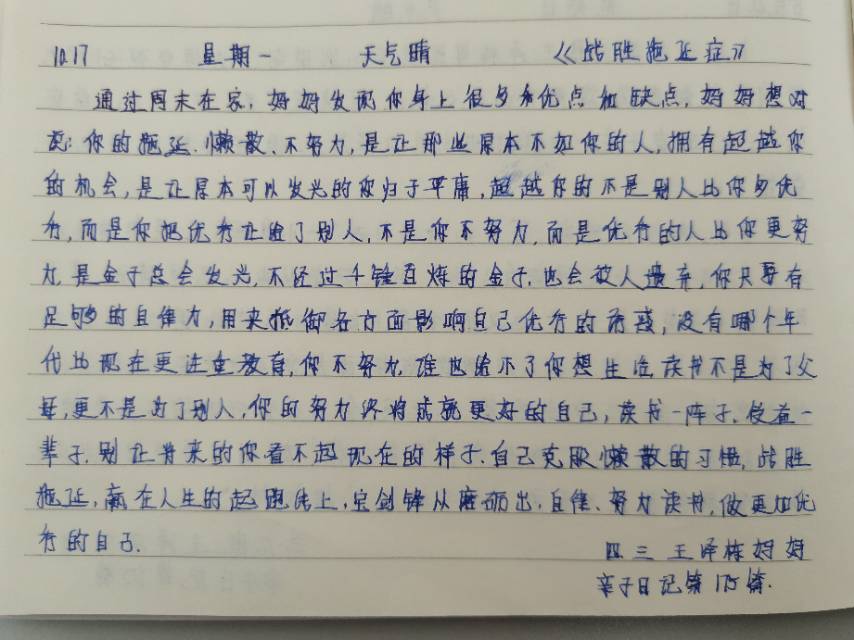 10.17 星期一 天气晴 《战胜拖延症》
通过周末在家,妈妈发现你身上很多的优点和缺点,妈妈想对
说:你的拖延、懒散、不努力,是让那些原本不如你的人,拥有超越你
的机会,是让原本可以发光的你归于平庸,超越你的不是别人比你多优
秀,而是你把优秀让给了别人,不是你不努力,而是优秀的人比你更努
力,是金子总会发光,不经过千锤百炼的金子,也会被人遗弃,你只要有
足够的自律力,用来抵御各方面影响自己优秀的诱惑,没有哪个年
代比现在更注重教育,你不努力,谁也给不了你想生活,读书不是为了父
母,更不是为了别人,你的努力终将成就更好的自己,读书一阵子,受益一
辈子,别让将来的你看不起现在的样子,自己克服懒散的习惯,战胜
拖延,赢在人生的起跑线上,宝剑锋从磨砺出,自律、努力读书,做更加优
秀的自己.
四三王泽栋妈妈
亲子日记第175篇.